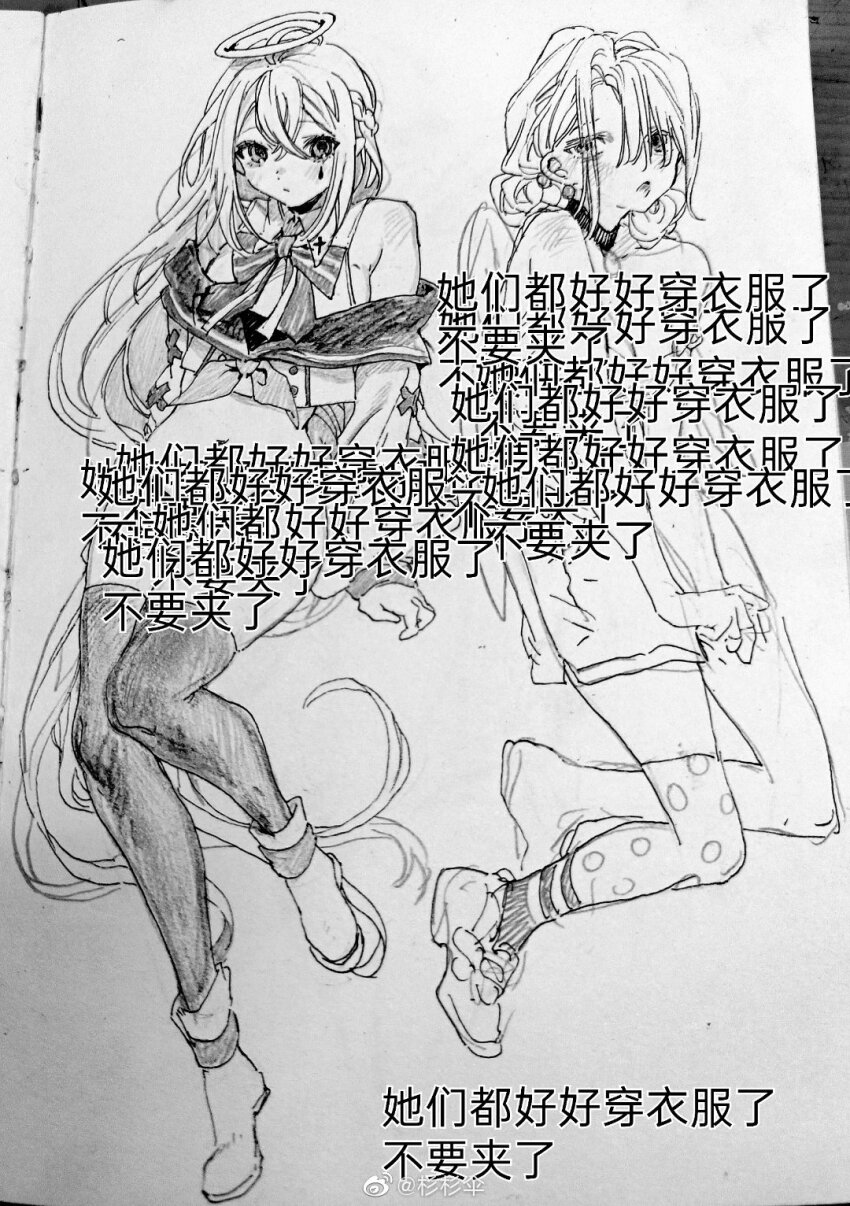 她们都好好穿衣服了
她们都好好穿衣服了
不要夹了
不她们都好好穿衣服了
她们都好好穿衣服了
不要夹了
她们都好好穿衣服了
她们都好好穿衣服了
她们都好好穿衣服了
不要夹了
她们都好好穿衣服了
她们都好好穿衣服了
不要夹了
她们都好好穿衣服了
不要夹了
她们都好好穿衣服了
不要夹了
@杉杉伞